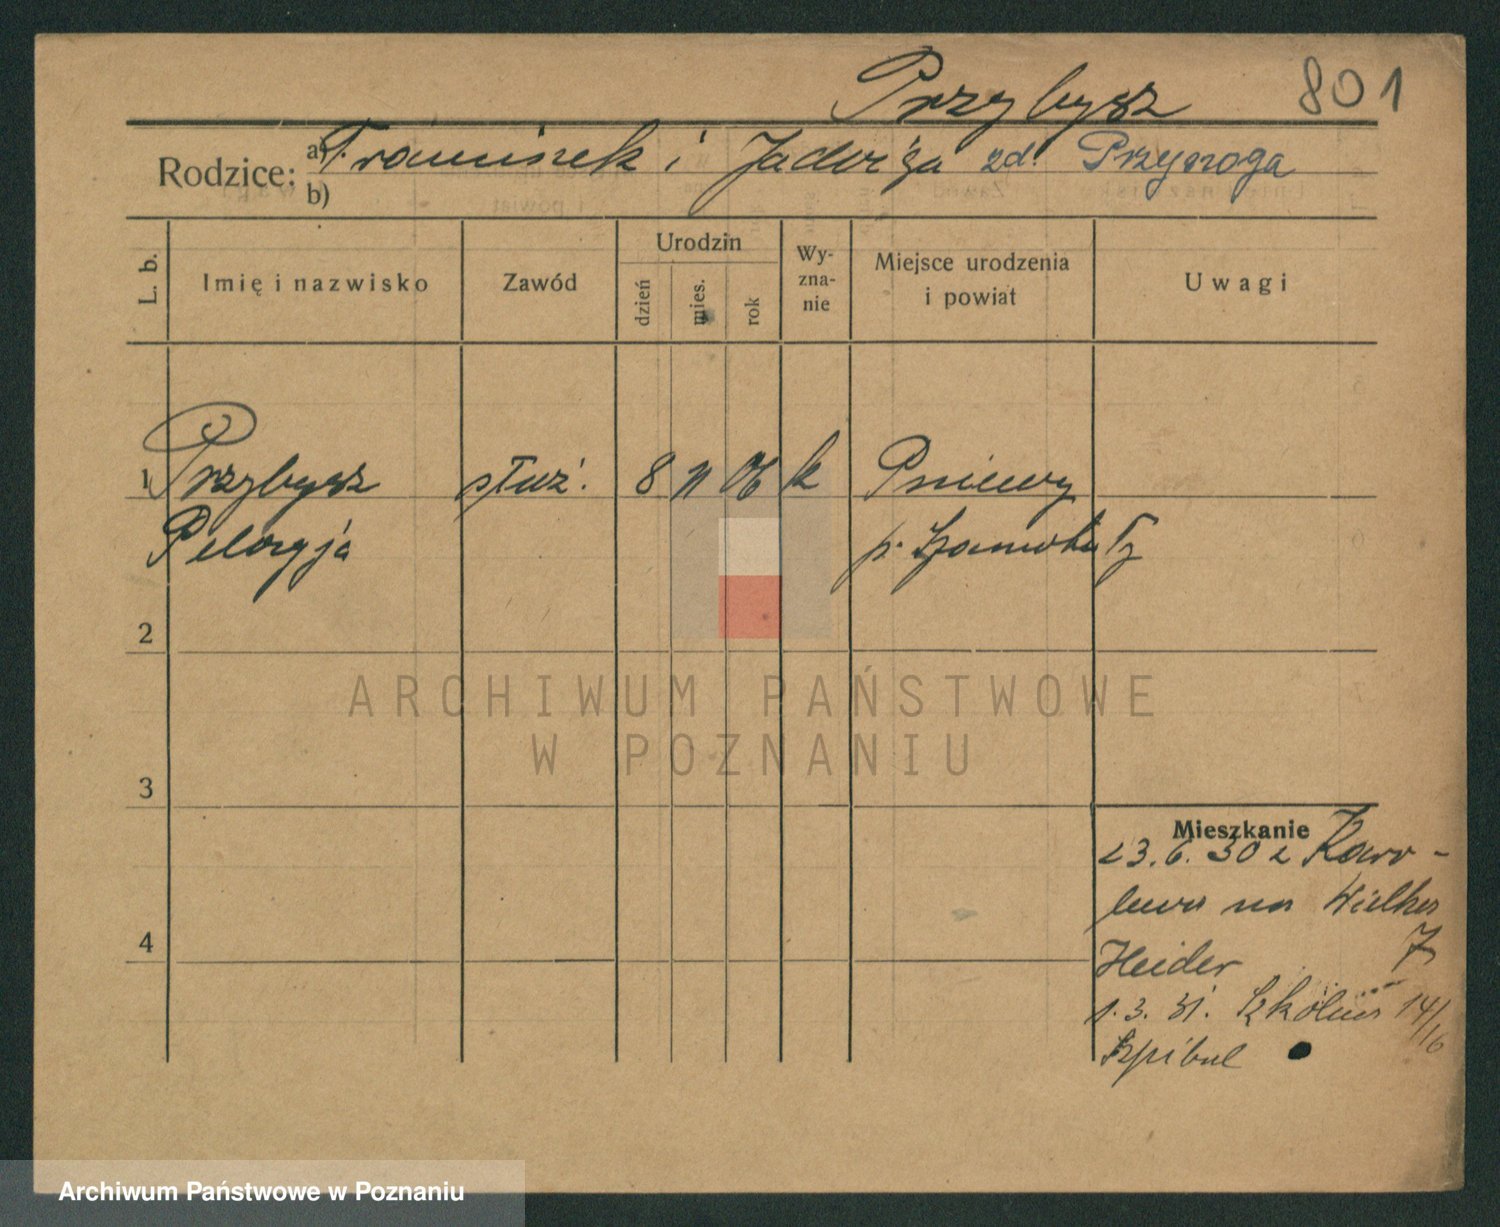 Przybysz 801
Rodzice: a) Franciszek i Jadwiga zd. Przezoga
b)
L. b. Imię i nazwisko Zawód Urodzin dzień mies. rok Wy-zna-nie Miejsce urodzenia i powiat Uwagi
1 Przybysz służ. 8 11 06 k Pniewy
Pelagja p. Szamotuły
2
ARCHIWUM PAŃSTWOWE
W POZNANIU
3
Mieszkanie
23.6.30 z
na Wielka
4
Heider 7
1.3.31. Szkolna 14/16
Szpital
Archiwum Państwowe w Poznaniu